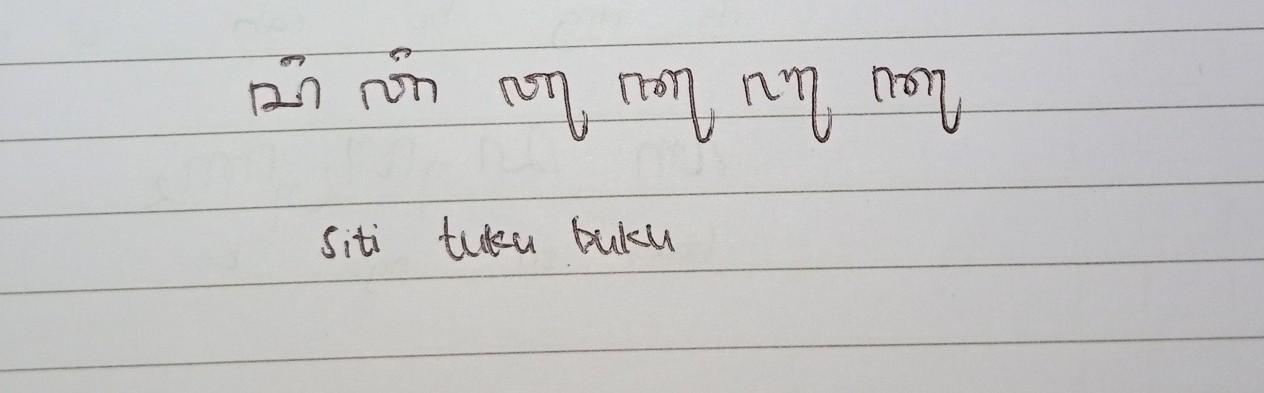 ꦱꦶ ꦠꦶ ꦠꦸ ꦏꦸ ꦧꦸ ꦏꦸ
siti tuku buku